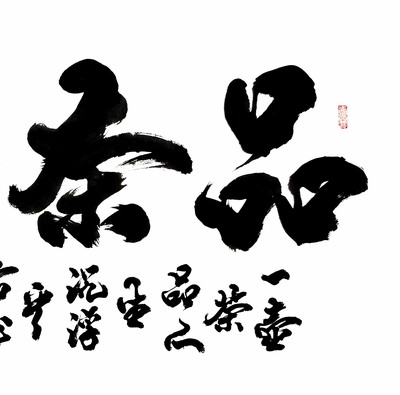 品茶
一壶
茶
品人
生
沉浮
平